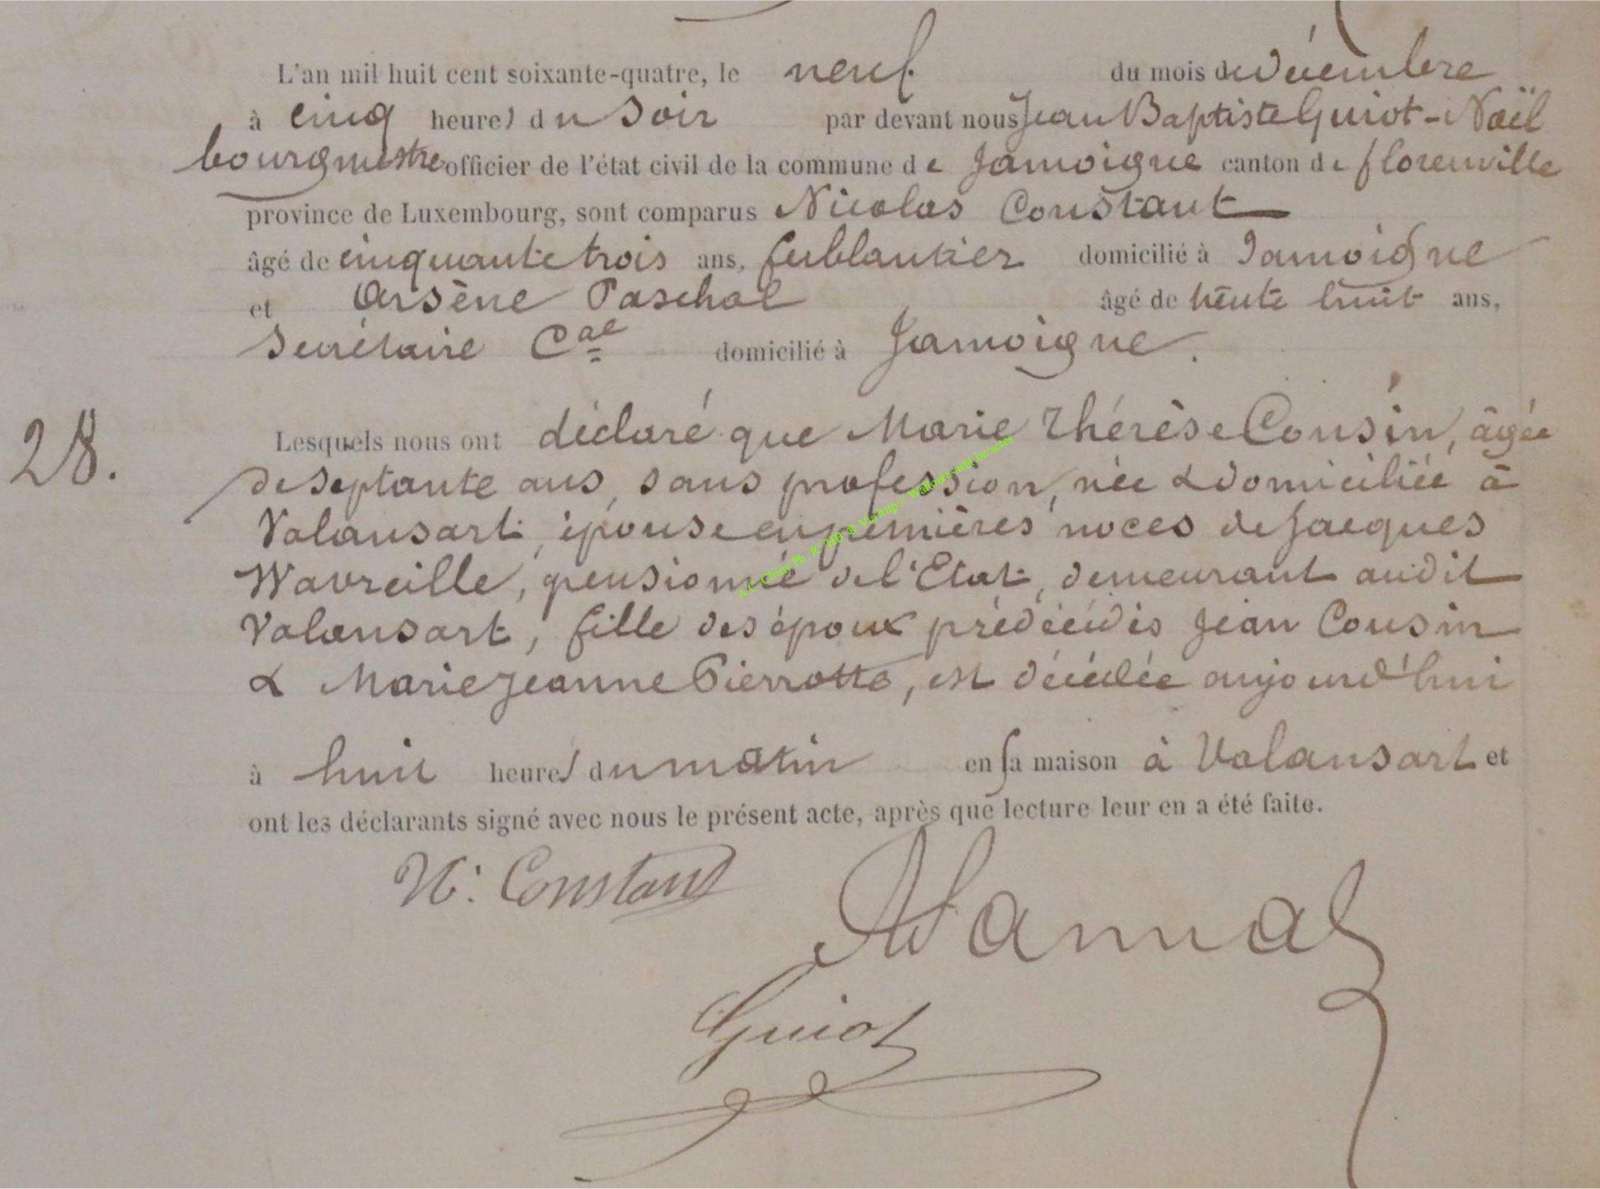 L'an mil huit cent soixante-quatre, le neuf du mois de décembre
à cinq heures du soir par devant nous Jean Baptiste Guiot-Noël
bourgmestre officier de l'état civil de la commune de Jamoigne canton de florenville
province de Luxembourg, sont comparus Nicolas Constant
âgé de cinquante trois ans, ferblantier domicilié à Jamoigne
et Arsène Paschal âgé de trente huit ans,
Secrétaire Cal domicilié à Jamoigne.
28.
Lesquels nous ont déclaré que Marie Thérèse Cousin, âgée
de septante ans, sans profession, née & domiciliée à
Valansart, épouse en premières noces de Jacques
Wavreille, pensionné de l'Etat, demeurant audit
Valansart, fille des époux prédécédés Jean Cousin
& Marie Jeanne Pierrotte, est décédée aujourd'hui
à huit heures du matin en sa maison à Valansart et
ont les déclarants signé avec nous le présent acte, après que lecture leur en a été faite.
N. Constant
Guiot